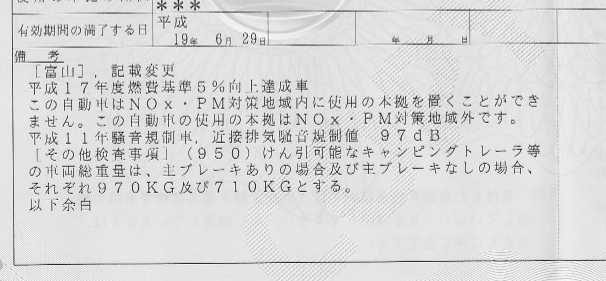 ***
有効期間の満了する日
平成
19年 6月 29日
年 月 日
備 考
[富山], 記載変更
平成17年度燃費基準5%向上達成車
この自動車はNOx・PM対策地域内に使用の本拠を置くことができ
ません。この自動車の使用の本拠はNOx・PM対策地域外です。
平成11年騒音規制車, 近接排気騒音規制値 97dB
[その他検査事項] (950)けん引可能なキャンピングトレーラ等
の車両総重量は、主ブレーキありの場合及び主ブレーキなしの場合、
それぞれ970KG及び710KGとする。
以下余白